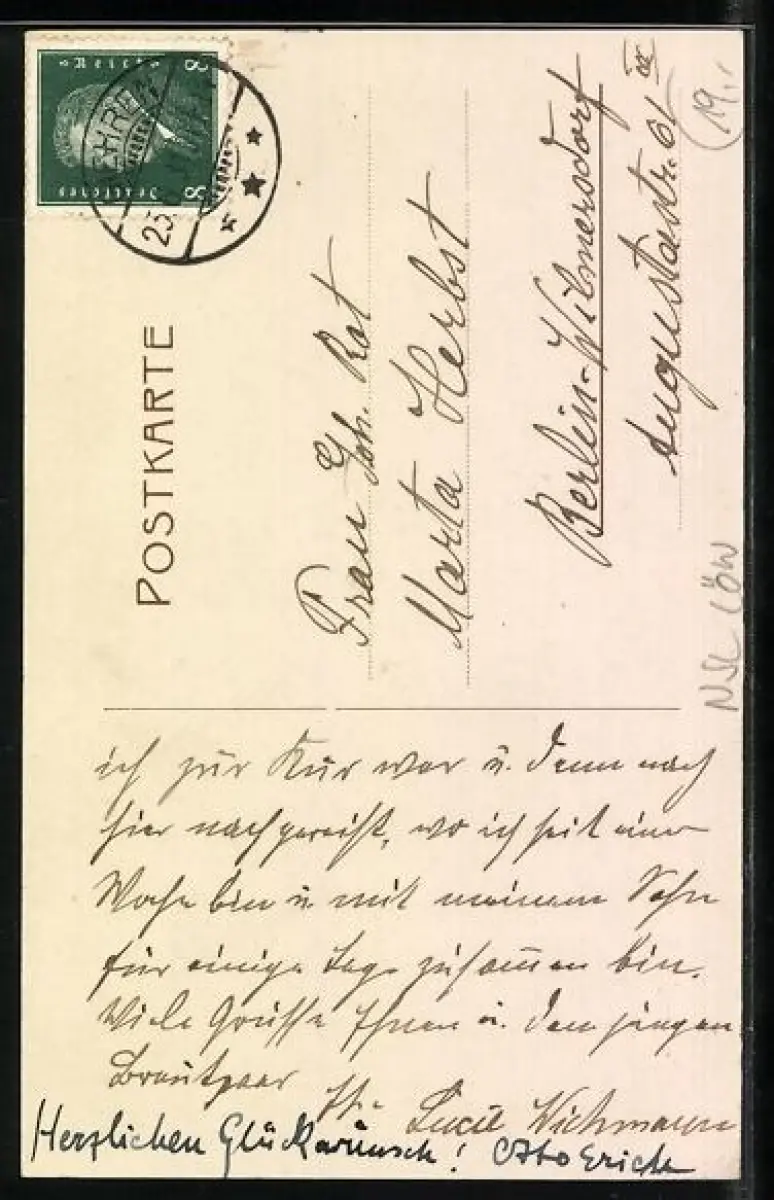 8 Reichspost 8
Deutsches
EHREN
23
POSTKARTE
Frau Geh. Rat
Marta Herbst
Berlin-Wilmersdorf
Augustastr. 61 II
19.-
ich zur Kur war u. dann nach
hier nachgereist, wo ich seit einer
Woche bin u. mit meinem Sohn
für einige Tage zusammen bin.
Viele Grüsse Ihnen u. dem jungen
Brautpaar
Ihre Lucie Wichmann
Herzlichen Glückwunsch! Otto Erich